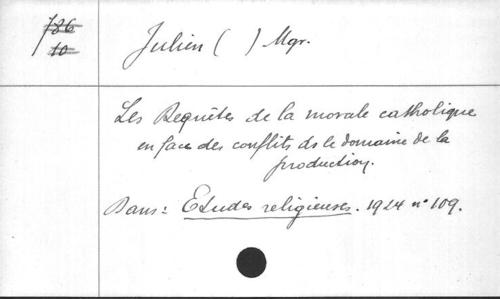 786
10
Julien ( ) Mgr.
Les Requêtes de la morale catholique
en face des conflits ds le domaine de la
production.
Dans: Etudes religieuses. 1924 n° 109.